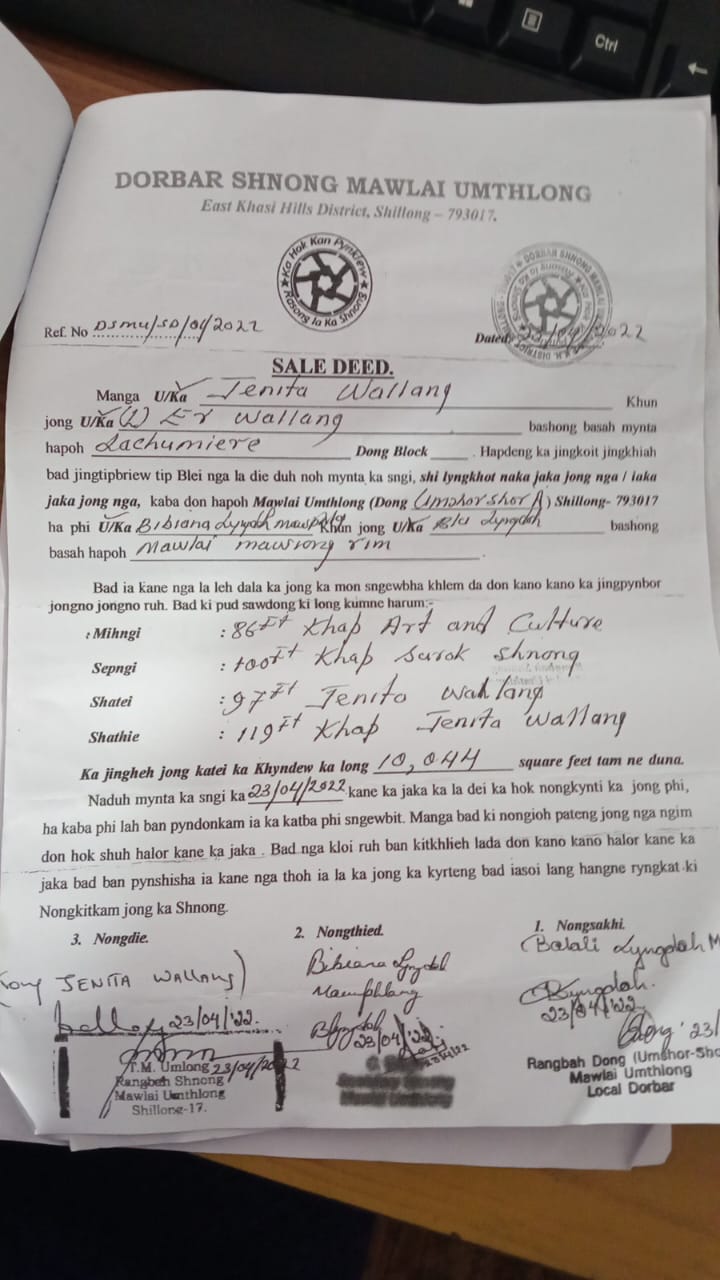 Ctrl
DORBAR SHNONG MAWLAI UMTHLONG
East Khasi Hills District, Shillong – 793017.
★ Ka Hok Kan Pynkiew ★
Rasong Ia Ka Shnong
DORBAR SHNONG
Ref. No DSMU/SD/04/2022
Dated 23/04/2022
SALE DEED.
Manga U/Ka Jenita Wallang Khun
jong U/Ka (L) Er Wallang bashong basah mynta
hapoh Lachumiere Dong Block ______ . Hapdeng ka jingkoit jingkhiah
bad jingtipbriew tip Blei nga la die duh noh mynta ka sngi, shi lyngkhot naka jaka jong nga / iaka
jaka jong nga, kaba don hapoh Mawlai Umthlong (Dong Umshorshor A) Shillong- 793017
ha phi U/Ka Bibiana Lyngdoh Mawphlang Khun jong U/Ka Lyngdoh bashong
basah hapoh Mawlai Mawsiong rim .
Bad ia kane nga la leh dala ka jong ka mon sngewbha khlem da don kano kano ka jingpynbor
jongno jongno ruh. Bad ki pud sawdong ki long kumne harum:-
: Mihngi : 86Ft Khap Art and Culture
Sepngi : 100Ft Khap Surok Shnong
Shatei : 97Ft Jenita Wallang
Shathie : 119Ft Khap Jenita Wallang
Ka jingheh jong katei ka Khyndew ka long 10,044 square feet tam ne duna.
Naduh mynta ka sngi ka 23/04/2022 kane ka jaka ka la dei ka hok nongkynti ka jong phi,
ha kaba phi lah ban pyndonkam ia ka katba phi sngewbit. Manga bad ki nongioh pateng jong nga ngim
don hok shuh halor kane ka jaka . Bad nga kloi ruh ban kitkhlieh lada don kano kano halor kane ka
jaka bad ban pynshisha ia kane nga thoh ia la ka jong ka kyrteng bad iasoi lang hangne ryngkat ki
Nongkitkam jong ka Shnong.
3. Nongdie. 2. Nongthied. 1. Nongsakhi.
JENITA WALLANG)
Bibiana Lyngdoh
Mawphlang
Balali Lyngdoh M
23/04/'22.
23/04/'22.
Lyngdoh.
23/04/'22
23/
23/4/22
T.M. Umlong 23/04/2022
Rangbah Shnong
Mawlai Umthlong
Shillong-17.
Secretary Shnong
Mawlai Umthlong
Rangbah Dong (Umshor-Sho
Mawlai Umthlong
Local Dorbar